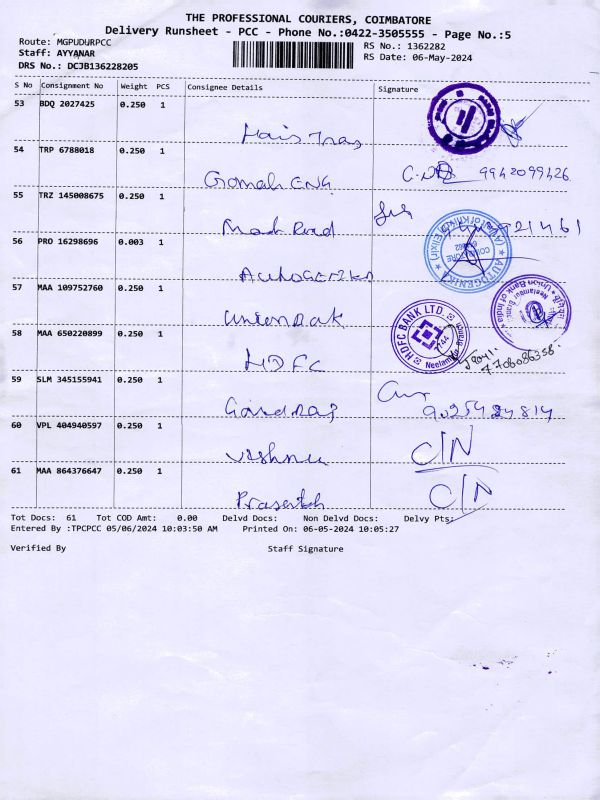 THE PROFESSIONAL COURIERS, COIMBATORE
Delivery Runsheet - PCC - Phone No.:0422-3505555 - Page No.:5
Route: MGPUDURPCC
Staff: AYYANAR
DRS No.: DCJB136228205
RS No.: 1362282
RS Date: 06-May-2024
S No Consignment No Weight PCS Consignee Details Signature
53 BDQ 2027425 0.250 1
54 TRP 6788018 0.250 1
Gomathi ENG 9942099426
55 TRZ 145008675 0.250 1
56 PRO 16298696 0.003 1
AUTOGENIKA
57 MAA 109752760 0.250 1
Union Bank of India
58 MAA 650220899 0.250 1
HDFC
HDFC BANK LTD.
59 SLM 345155941 0.250 1
60 VPL 404940597 0.250 1
Vishnu C/N
61 MAA 864376647 0.250 1
C/N
Tot Docs: 61 Tot COD Amt: 0.00 Delvd Docs: Non Delvd Docs: Delvy Pts:
Entered By :TPCPCC 05/06/2024 10:03:50 AM Printed On: 06-05-2024 10:05:27
Verified By Staff Signature